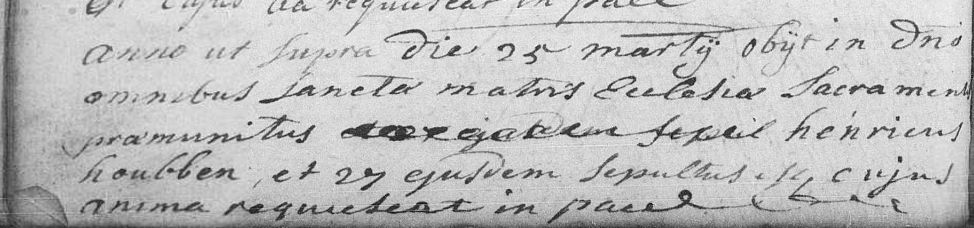 cujus a͞ia requiescat in pace
anno ut supra die 25 martÿ obÿt in dn̄o
omnibus Sancta matris Ecclesia Sacrament
præmunitus henricus
houbben, et 27 ejusdem sepultus est cujus
anima requiescat in pace